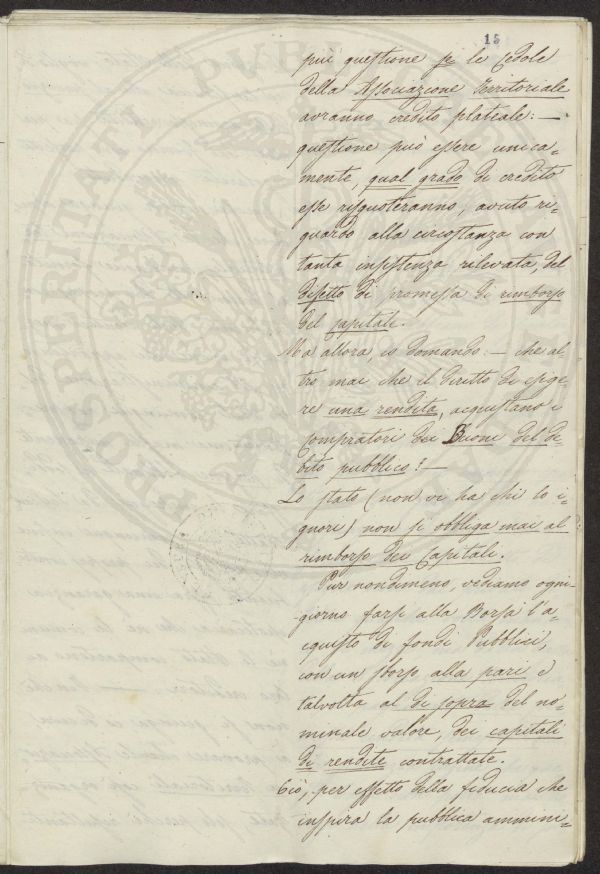 15
più questione se le Cedole
della Associazione Territoriale
avranno credito plateale: —
questione può essere unica-
mente, qual grado di credito
esse risquoteranno, avuto ri-
guardo alla circostanza con
tanta insistenza rilevata, del
difetto di promessa di rimborso
del capitale.
Ma allora, io domando: — che al
tro mai che il diritto di esige
re una rendita, acquistano i
compratori dei Buoni del de-
bito pubblico? —
Lo stato (non vi ha chi lo i-
gnori) non si obbliga mai al
rimborso dei Capitali.
Pur nondimeno, vediamo ogni
giorno farsi alla Borsa l'a-
cquisto di fondi Pubblici,
con un sborso alla pari e
talvolta al di sopra del no-
minale valore, dei capitali
di rendite contrattate.
Ciò, per effetto della fiducia che
inspira la pubblica ammini-
PROSPERITATI PVBLICAE